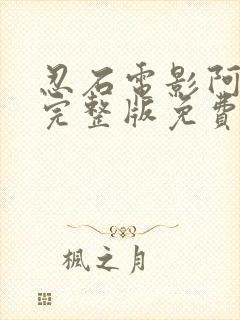 忍石電影阿
完整版免費
楓之月